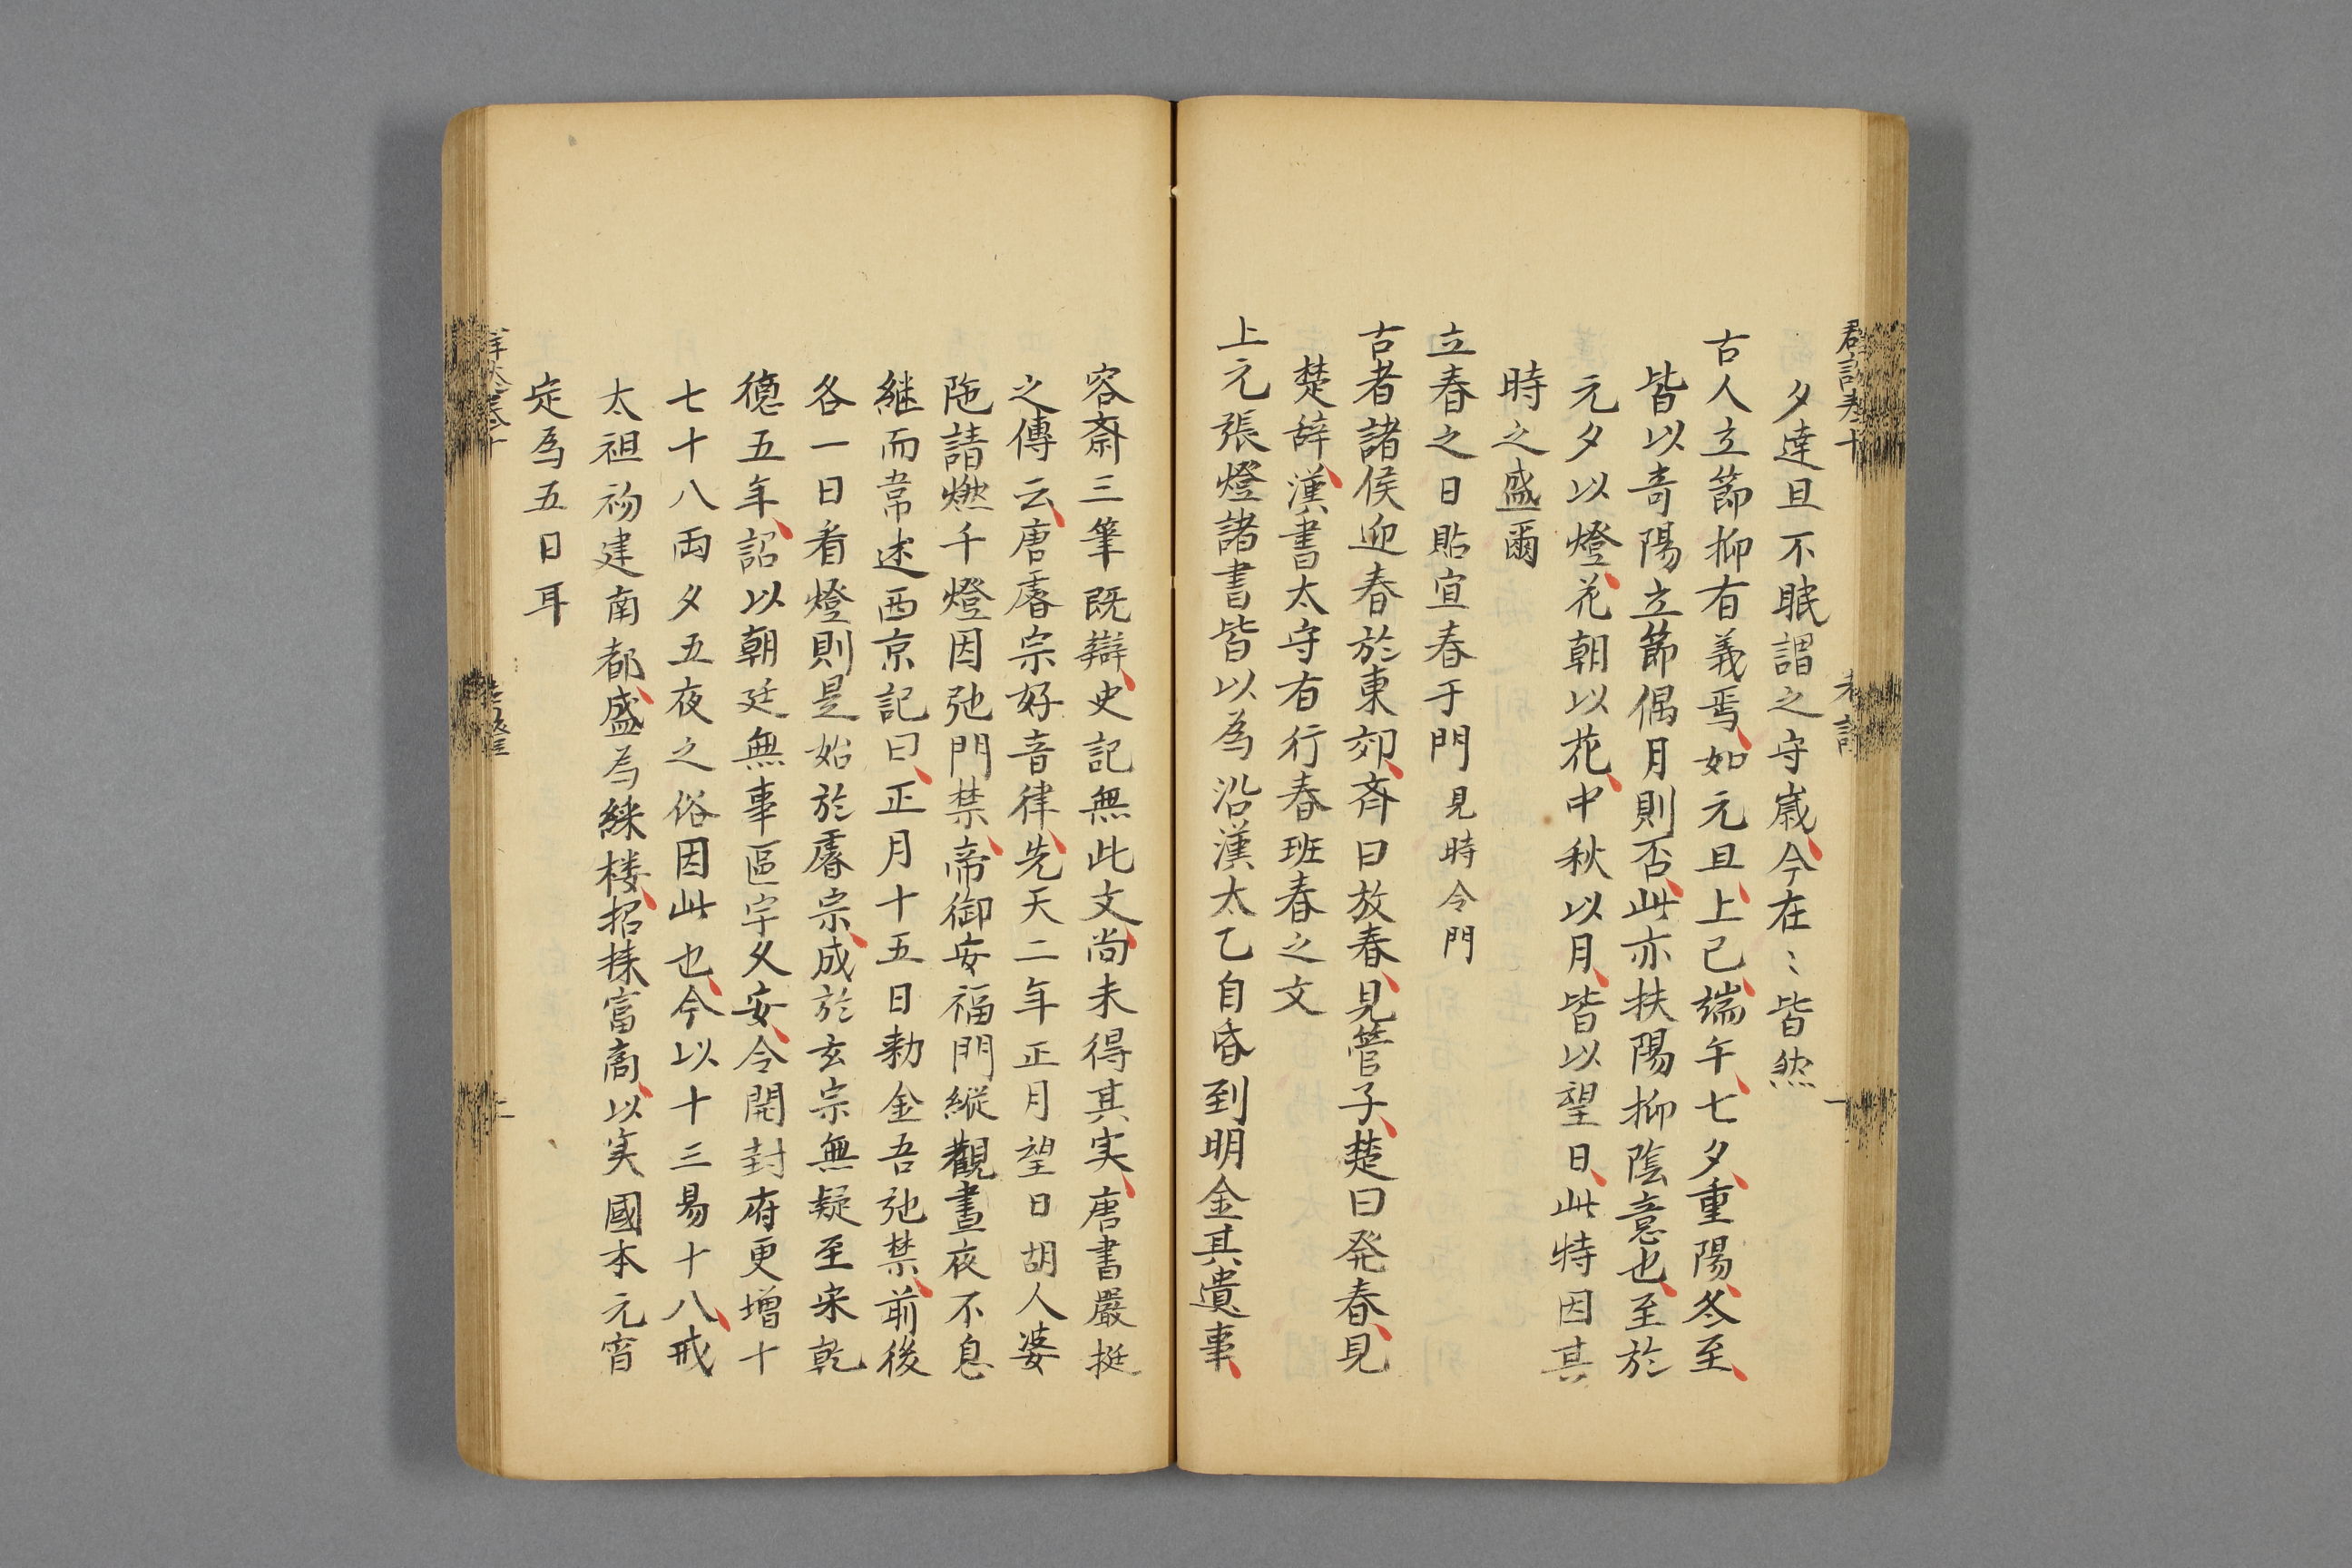 夕達旦不眠謂之守歲今在〻皆然
古人立節抑有義焉如元旦上已端午七夕重陽冬至
皆以竒陽立節偶月則否此亦扶陽抑陰意也至於
元夕以燈花朝以花中秋以月皆以望日此特因其
時之盛爾
立春之日貼宜春于門見時令門
古者諸侯迎春於東郊斉曰放春見管子楚曰発春見
楚辞漢書太守有行春班春之文
上元張燈諸書皆以為沿漢太乙自昏到明金其遺事
容斎三筆既辯史記無此文尚未得其実唐書嚴挺
之傳云唐睿宗好音律先天二年正月望日胡人婆
陁請燃千燈因弛門禁帝御安福門縦觀晝夜不息
継而韋述西京記曰正月十五日勅金吾弛禁前後
各一日看燈則是始於睿宗成於玄宗無疑至宋乾
徳五年詔以朝廷無事區宇乂安令開封府更増十
七十八両夕五夜之俗因此也今以十三易十八戒
太祖初建南都盛為綵楼招捸富商以実國本元宵
定為五日耳